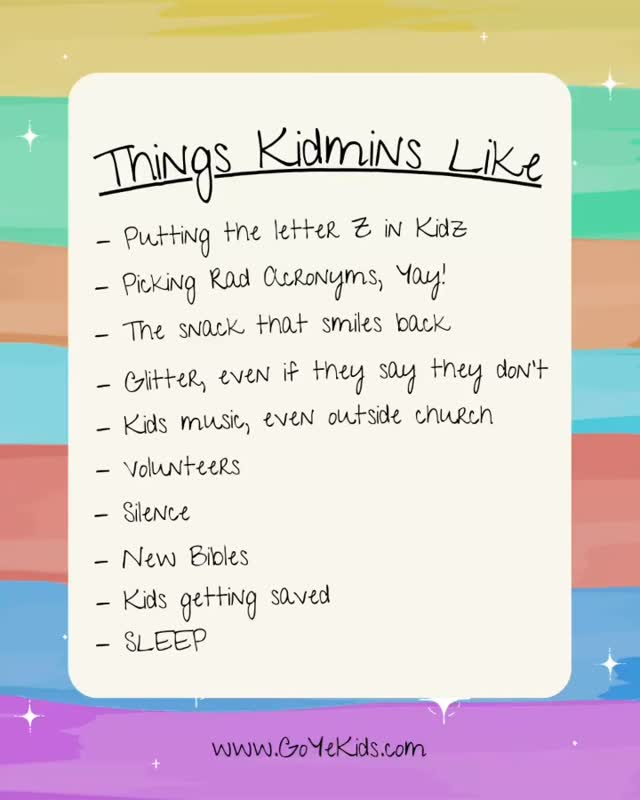 Things Kidmins Like
- Putting the letter Z in Kidz
- Picking Rad Acronyms, Yay!
- The snack that smiles back
- Glitter, even if they say they don't
- Kids music, even outside church
- Volunteers
- Silence
- New Bibles
- Kids getting saved
- SLEEP
www.GoYeKids.com